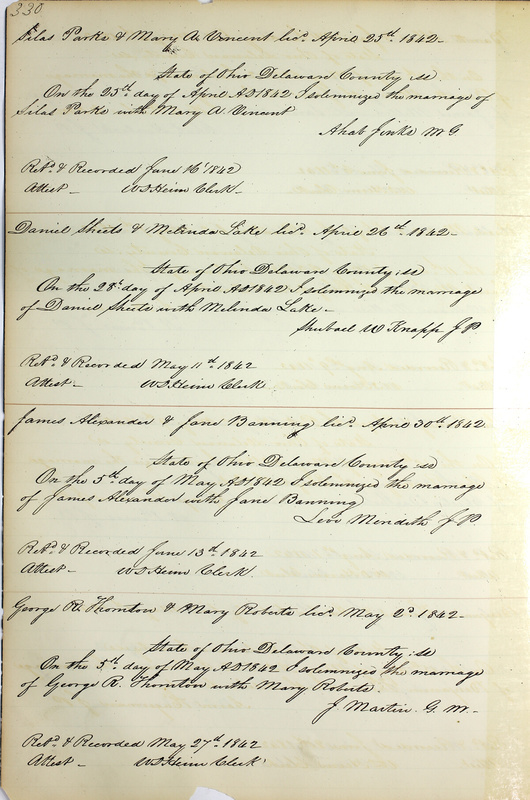 330
Silas Parks & Mary A. Vincent lic.d April 25th 1842-
State of Ohio Delaware County ss
On the 25th day of April AD 1842 I solemnized the marriage of
Silas Parks with Mary A Vincent
Ahab Jinks M G
Ret.d & Recorded June 16th 1842
Attest - W D Heim Clerk-
Daniel Sheets & Melinda Lake lic.d April 26th 1842-
State of Ohio Delaware County; ss
On the 28th day of April AD 1842 I solemnized the marriage
of Daniel Sheets with Melinda Lake-
Shubael W Knapp J P
Ret.d & Recorded May 11th 1842
Attest- W D Heim Clerk
James Alexander & Jane Banning lic.d April 30th 1842
State of Ohio Delaware County ss
On the 5th day of May AD 1842 I solemnized the marriage
of James Alexander with Jane Banning
Levi Meredith J P
Ret.d & Recorded June 13th 1842
Attest- W D Heim Clerk.
George R. Thornton & Mary Roberts lic.d May 2d 1842-
State of Ohio Delaware County: ss
On the 5th day of May AD 1842 I solemnized the marriage
of George R. Thornton with Mary Roberts.
J. Martin. G. M.-
Ret.d & Recorded May 27th 1842
Attest- W D Heim Clerk